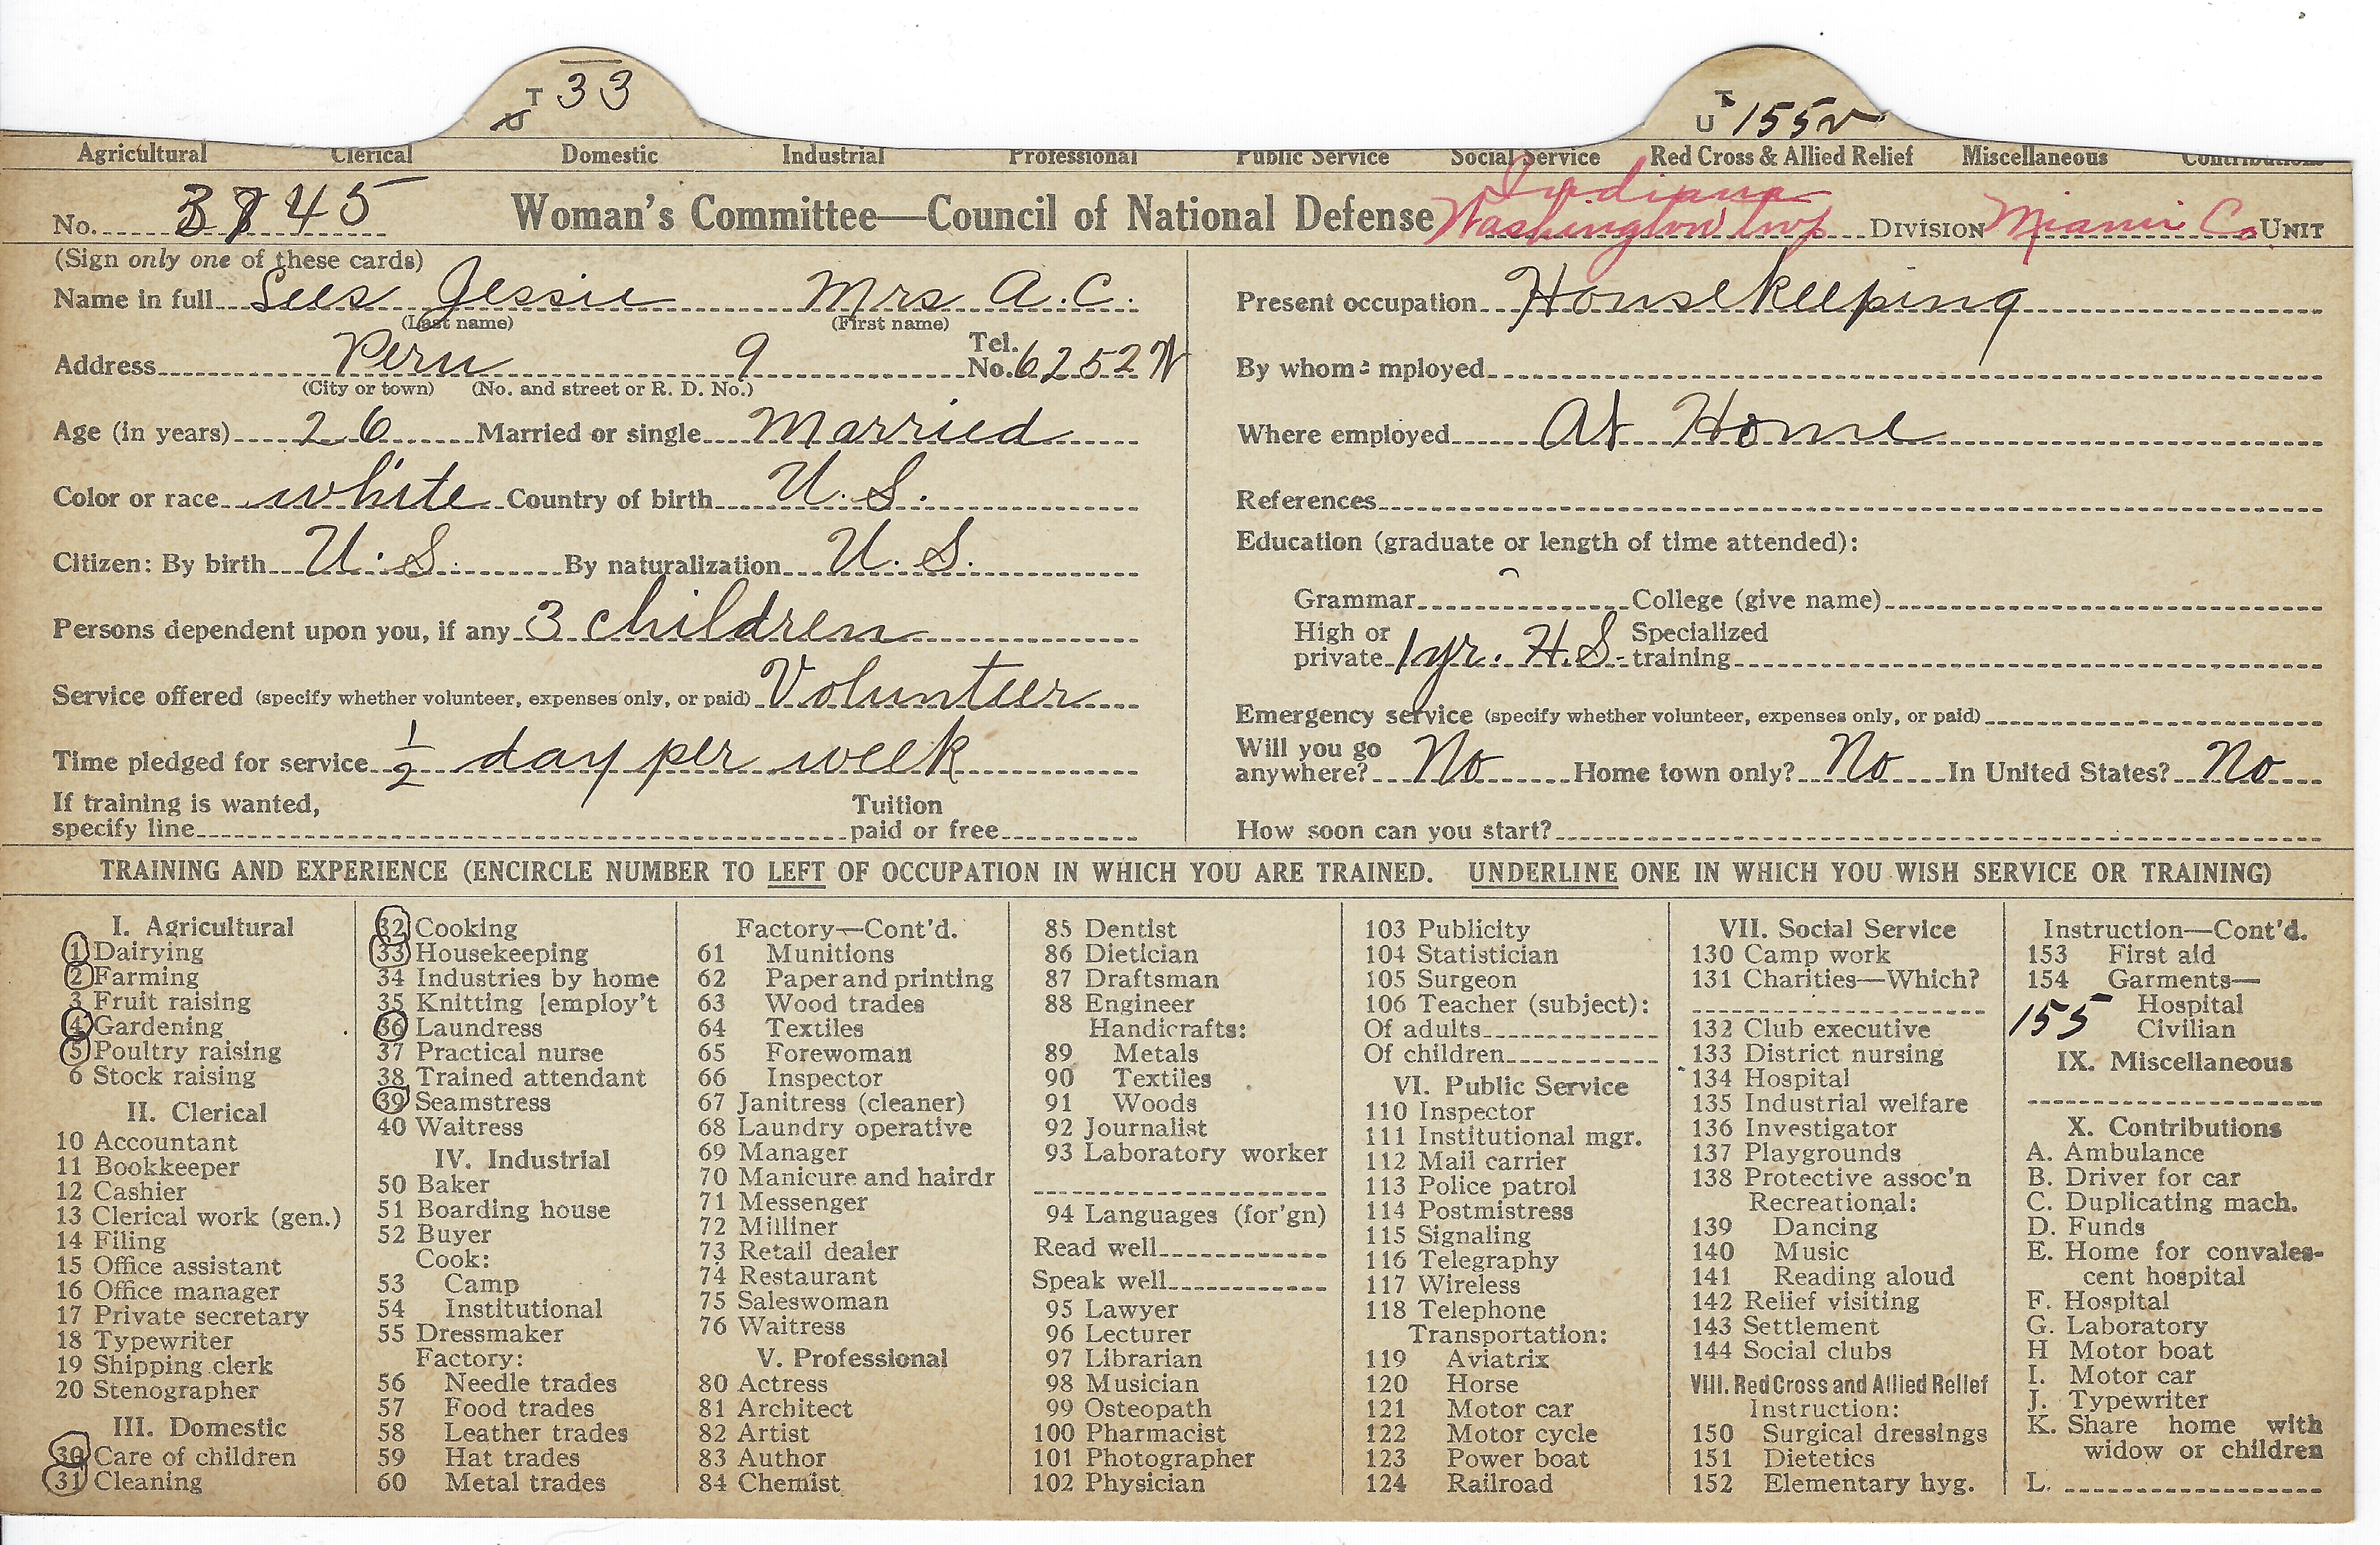 T 33
U
T
U 155v
Agricultural Clerical Domestic Industrial Professional Public Service Social Service Red Cross & Allied Relief Miscellaneous Contributions
Indiana
No. 3745 Woman's Committee—Council of National Defense Washington twp DIVISION Miami Co. UNIT
(Sign only one of these cards)
Name in full Sees Jessie Mrs A.C.
(Last name) (First name)
Address Peru 9 Tel. No. 6252 W
(City or town) (No. and street or R. D. No.)
Age (in years) 26 Married or single Married
Color or race white Country of birth U.S.
Citizen: By birth U.S. By naturalization U.S.
Persons dependent upon you, if any 3 children
Service offered (specify whether volunteer, expenses only, or paid) Volunteer
Time pledged for service 1/2 day per week
If training is wanted, Tuition
specify line paid or free
Present occupation Housekeeping
By whom employed
Where employed At Home
References
Education (graduate or length of time attended):
Grammar College (give name)
High or Specialized
private 1 yr. H.S. training
Emergency service (specify whether volunteer, expenses only, or paid)
Will you go
anywhere? No Home town only? No In United States? No
How soon can you start?
TRAINING AND EXPERIENCE (ENCIRCLE NUMBER TO LEFT OF OCCUPATION IN WHICH YOU ARE TRAINED. UNDERLINE ONE IN WHICH YOU WISH SERVICE OR TRAINING)
I. Agricultural
1 Dairying
2 Farming
3 Fruit raising
4 Gardening
5 Poultry raising
6 Stock raising
II. Clerical
10 Accountant
11 Bookkeeper
12 Cashier
13 Clerical work (gen.)
14 Filing
15 Office assistant
16 Office manager
17 Private secretary
18 Typewriter
19 Shipping clerk
20 Stenographer
III. Domestic
30 Care of children
31 Cleaning
32 Cooking
33 Housekeeping
34 Industries by home
35 Knitting [employ't
36 Laundress
37 Practical nurse
38 Trained attendant
39 Seamstress
40 Waitress
IV. Industrial
50 Baker
51 Boarding house
52 Buyer
Cook:
53 Camp
54 Institutional
55 Dressmaker
Factory:
56 Needle trades
57 Food trades
58 Leather trades
59 Hat trades
60 Metal trades
Factory—Cont'd.
61 Munitions
62 Paper and printing
63 Wood trades
64 Textiles
65 Forewoman
66 Inspector
67 Janitress (cleaner)
68 Laundry operative
69 Manager
70 Manicure and hairdr
71 Messenger
72 Milliner
73 Retail dealer
74 Restaurant
75 Saleswoman
76 Waitress
V. Professional
80 Actress
81 Architect
82 Artist
83 Author
84 Chemist
85 Dentist
86 Dietician
87 Draftsman
88 Engineer
Handicrafts:
89 Metals
90 Textiles
91 Woods
92 Journalist
93 Laboratory worker
94 Languages (for'gn)
Read well
Speak well
95 Lawyer
96 Lecturer
97 Librarian
98 Musician
99 Osteopath
100 Pharmacist
101 Photographer
102 Physician
103 Publicity
104 Statistician
105 Surgeon
106 Teacher (subject):
Of adults
Of children
VI. Public Service
110 Inspector
111 Institutional mgr.
112 Mail carrier
113 Police patrol
114 Postmistress
115 Signaling
116 Telegraphy
117 Wireless
118 Telephone
Transportation:
119 Aviatrix
120 Horse
121 Motor car
122 Motor cycle
123 Power boat
124 Railroad
VII. Social Service
130 Camp work
131 Charities—Which?
132 Club executive
133 District nursing
134 Hospital
135 Industrial welfare
136 Investigator
137 Playgrounds
138 Protective assoc'n
Recreational:
139 Dancing
140 Music
141 Reading aloud
142 Relief visiting
143 Settlement
144 Social clubs
VIII. Red Cross and Allied Relief
Instruction:
150 Surgical dressings
151 Dietetics
152 Elementary hyg.
Instruction—Cont'd.
153 First aid
154 Garments—
Hospital
155 Civilian
IX. Miscellaneous
X. Contributions
A. Ambulance
B. Driver for car
C. Duplicating mach.
D. Funds
E. Home for convales-
cent hospital
F. Hospital
G. Laboratory
H Motor boat
I. Motor car
J. Typewriter
K. Share home with
widow or children
L.